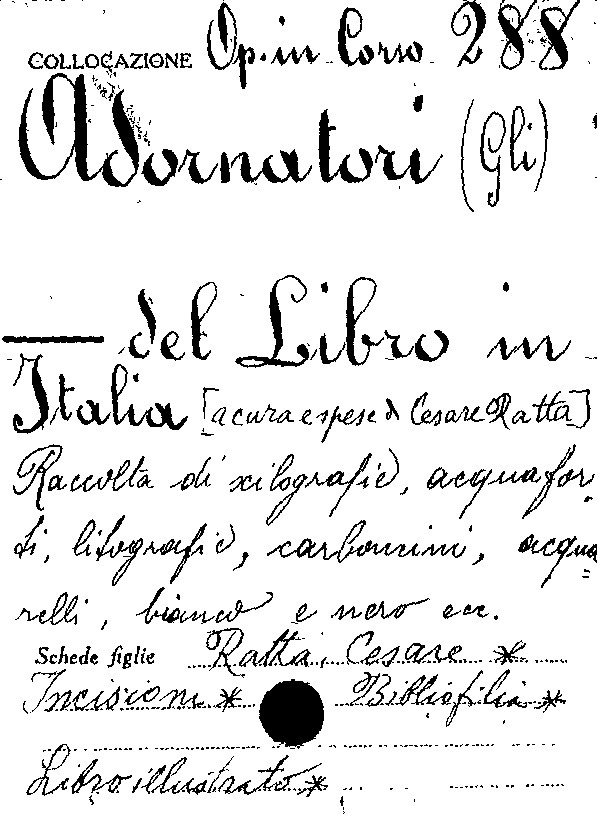 COLLOCAZIONE Op. in Corso 288
Adornatori (Gli)
— del Libro in
Italia [a cura e spese di Cesare Ratta]
Raccolta di xilografie, acquafor-
ti, litografie, carboncini, acqua=
relli, bianco e nero ecc.
Schede figlie Ratta, Cesare *
Incisioni * Bibliofilia *
Libro illustrato *